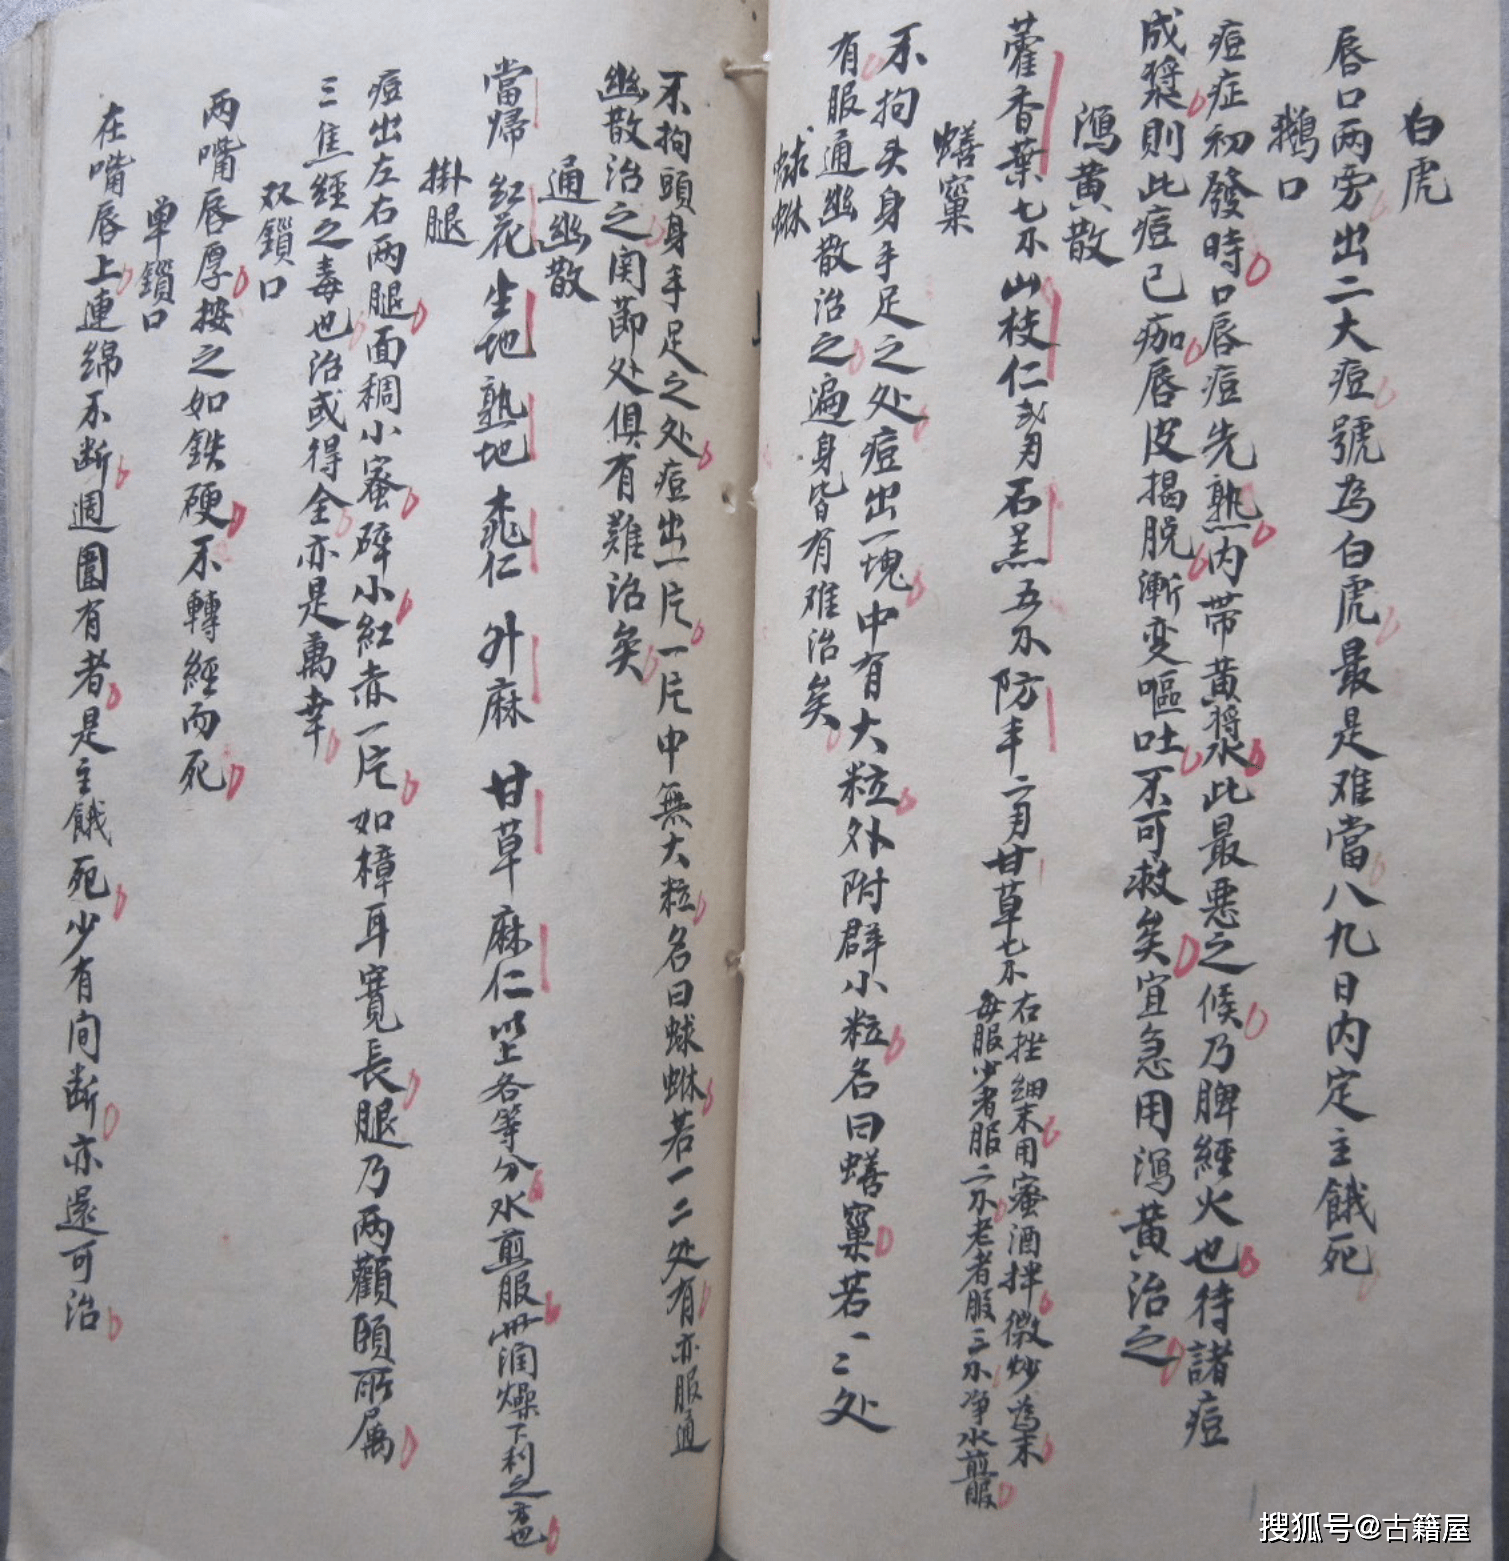 白虎
唇口兩旁出二大痘號為白虎最是难當八九日内定主餓死
鵝口
痘症初發時口唇痘先熟内带黄漿水此最悪之候乃脾經火也待諸痘
成漿則此痘已痂唇皮揭脱漸变嘔吐不可救矣宜急用瀉黄治之
瀉黄散
藿香葉七不山枝仁
石羔五不防丰二月甘草七不
右挫細末用蜜酒拌微炒為末
每服少者服二不老者服三不净水煎服
蟮窠
不拘头身手足之处痘出一塊中有大粒外附群小粒名曰蟮窠若一二处
有服通幽散治之遍身皆有难治矣
蛷螋
不拘頭身手足之处痘出一片一片中無大粒名曰蛷螋若一二处有亦服通
幽散治之関節处俱有難治矣
通幽散
當歸 紅花 生地 熟地 桃仁 外麻 甘草 麻仁 以上各等分水煎服此潤燥下利之方也
掛腿
痘出左右两腿面稠小蜜碎小紅赤一片如樟耳寬長腿乃两顴頤所属
三焦經之毒也治或得全亦是萬幸
双鎖口
两嘴唇厚按之如鉄硬不轉經而死
单鎖口
在嘴唇上連綿不断週圍有者是主餓死少有间断亦還可治
搜狐号@古籍屋